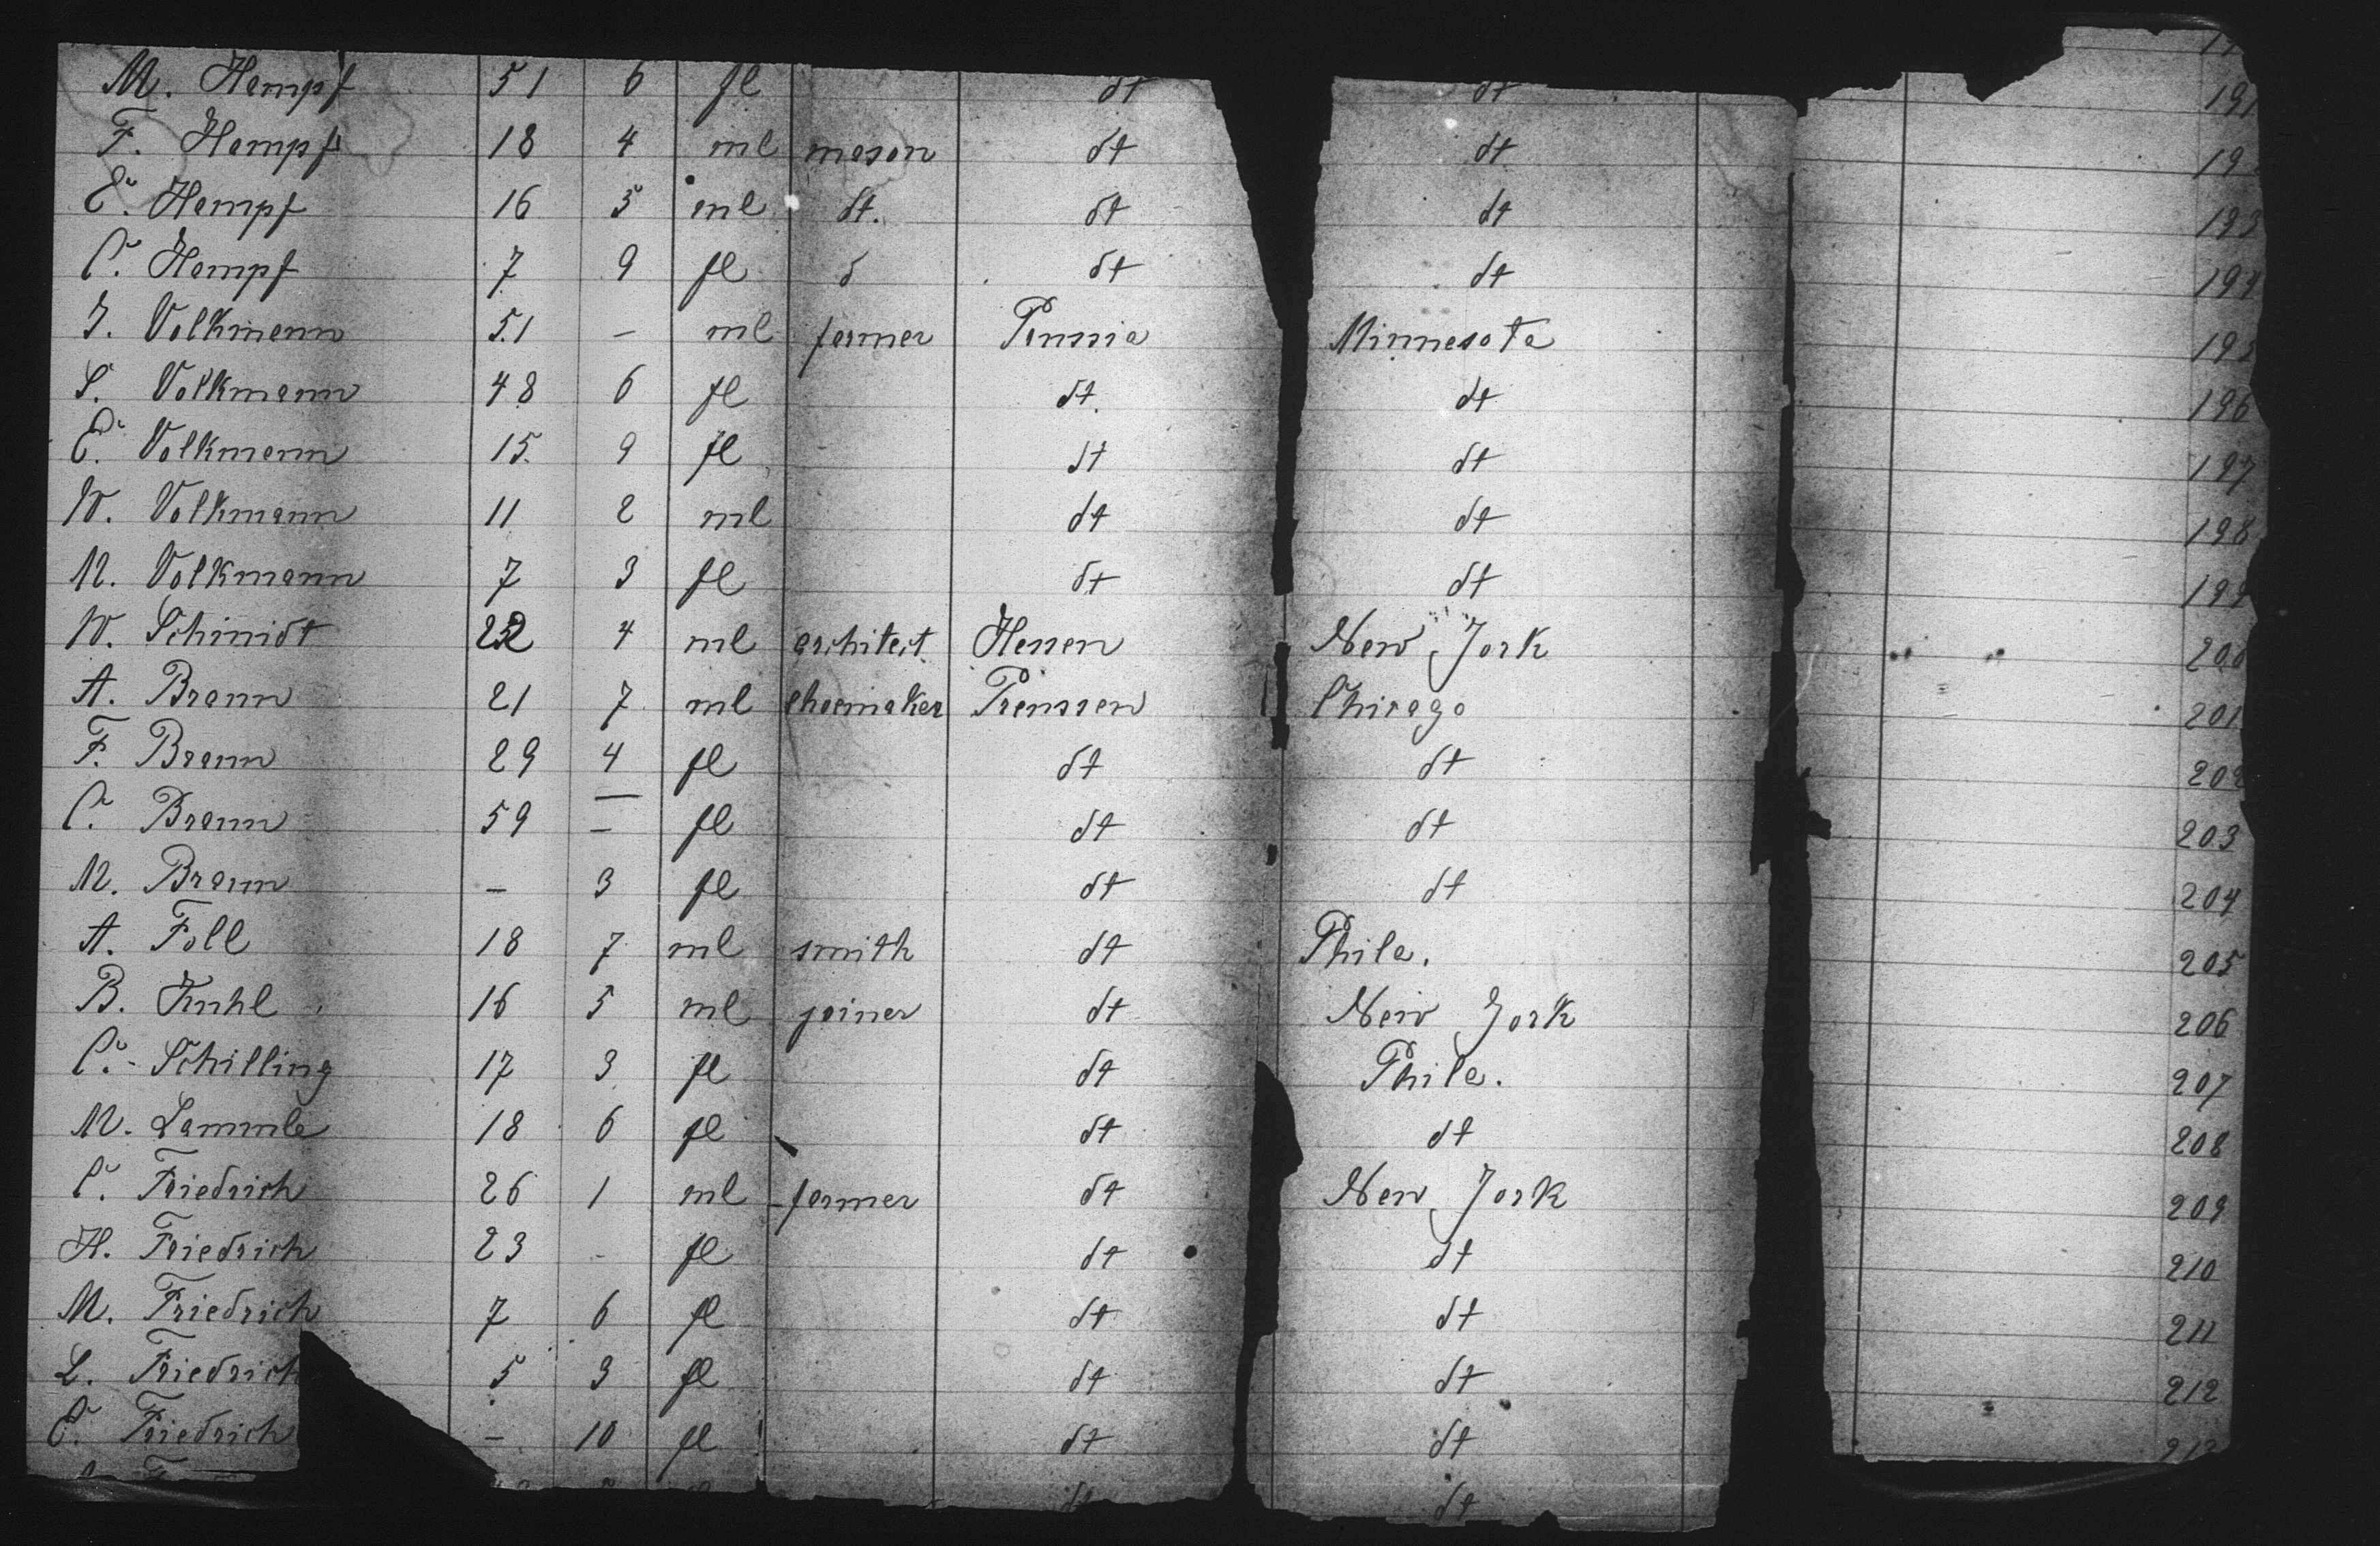 M. Hempf 51 6 fl dt dt 191
F. Hempf 18 4 ml mason dt dt 19
E. Hempf 16 5 ml dt. dt dt 193
C. Hempf 7 9 fl d dt dt 194
J. Volkmann 51 – ml farmer Prussia Minnesota 195
S. Volkmann 48 6 fl dt. dt 196
E. Volkmann 15 9 fl dt dt 197
W. Volkmann 11 2 ml dt dt 198
M. Volkmann 7 3 fl dt dt 199
W. Schmidt 22 4 ml architect Hessen New York 200
A. Braun 21 7 ml shoemaker Preussen Chicago 201
F. Braun 29 4 fl dt dt 202
C. Braun 59 – fl dt dt 203
M. Braun – 3 fl dt dt 204
A. Foll 18 7 ml smith dt Phila. 205
B. Kuhl 16 5 ml joiner dt New York 206
C. Schilling 17 3 fl dt Phila. 207
M. Lammle 18 6 fl dt dt 208
C. Friedrich 26 1 ml farmer dt New York 209
H. Friedrich 23 - fl dt dt 210
M. Friedrich 7 6 fl dt dt 211
L. Friedrich 5 3 fl dt dt 212
E. Friedrich – 10 fl dt dt 213
dt dt